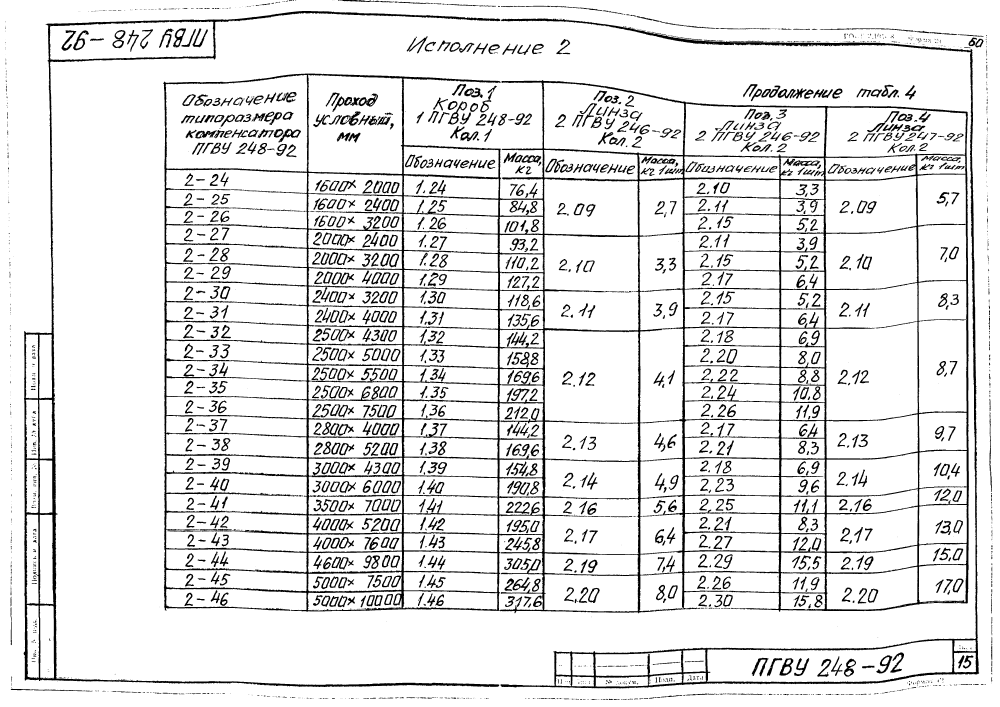 ПГВУ 248-92
60
Исполнение 2
Продолжение табл. 4
Обозначение типоразмера компенсатора ПГВУ 248-92 | Проход условный, мм | Поз. 1 Короб 1 ПГВУ 248-92 Кол. 1 | Поз. 2 Линза 2 ПГВУ 246-92 Кол. 2 | Поз. 3 Линза 2 ПГВУ 246-92 Кол. 2 | Поз. 4 Линза 2 ПГВУ 247-92 Кол. 2
Обозначение | Масса, кг | Обозначение | Масса, кг 1шт | Обозначение | Масса, кг 1шт | Обозначение | Масса, кг 1шт
2-24 1600×2000 1.24 76,4 2.09 2,7 2.10 3,3 2.09 5,7
2-25 1600×2400 1.25 84,8 2.11 3,9
2-26 1600×3200 1.26 101,8 2.15 5,2
2-27 2000×2400 1.27 93,2 2.10 3,3 2.11 3,9 2.10 7,0
2-28 2000×3200 1.28 110,2 2.15 5,2
2-29 2000×4000 1.29 127,2 2.17 6,4
2-30 2400×3200 1.30 118,6 2.11 3,9 2.15 5,2 2.11 8,3
2-31 2400×4000 1.31 135,6 2.17 6,4
2-32 2500×4300 1.32 144,2 2.12 4,1 2.18 6,9 2.12 8,7
2-33 2500×5000 1.33 158,8 2.20 8,0
2-34 2500×5500 1.34 169,6 2.22 8,8
2-35 2500×6800 1.35 197,2 2.24 10,8
2-36 2500×7500 1.36 212,0 2.26 11,9
2-37 2800×4000 1.37 144,2 2.13 4,6 2.17 6,4 2.13 9,7
2-38 2800×5200 1.38 169,6 2.21 8,3
2-39 3000×4300 1.39 154,8 2.14 4,9 2.18 6,9 2.14 10,4
2-40 3000×6000 1.40 190,8 2.23 9,6
2-41 3500×7000 1.41 222,6 2.16 5,6 2.25 11,1 2.16 12,0
2-42 4000×5200 1.42 195,0 2.17 6,4 2.21 8,3 2.17 13,0
2-43 4000×7600 1.43 245,8 2.27 12,0
2-44 4600×9800 1.44 305,0 2.19 7,4 2.29 15,5 2.19 15,0
2-45 5000×7500 1.45 264,8 2.20 8,0 2.26 11,9 2.20 17,0
2-46 5000×10000 1.46 317,6 2.30 15,8
№ докум. Подп. Дата
ПГВУ 248-92
15